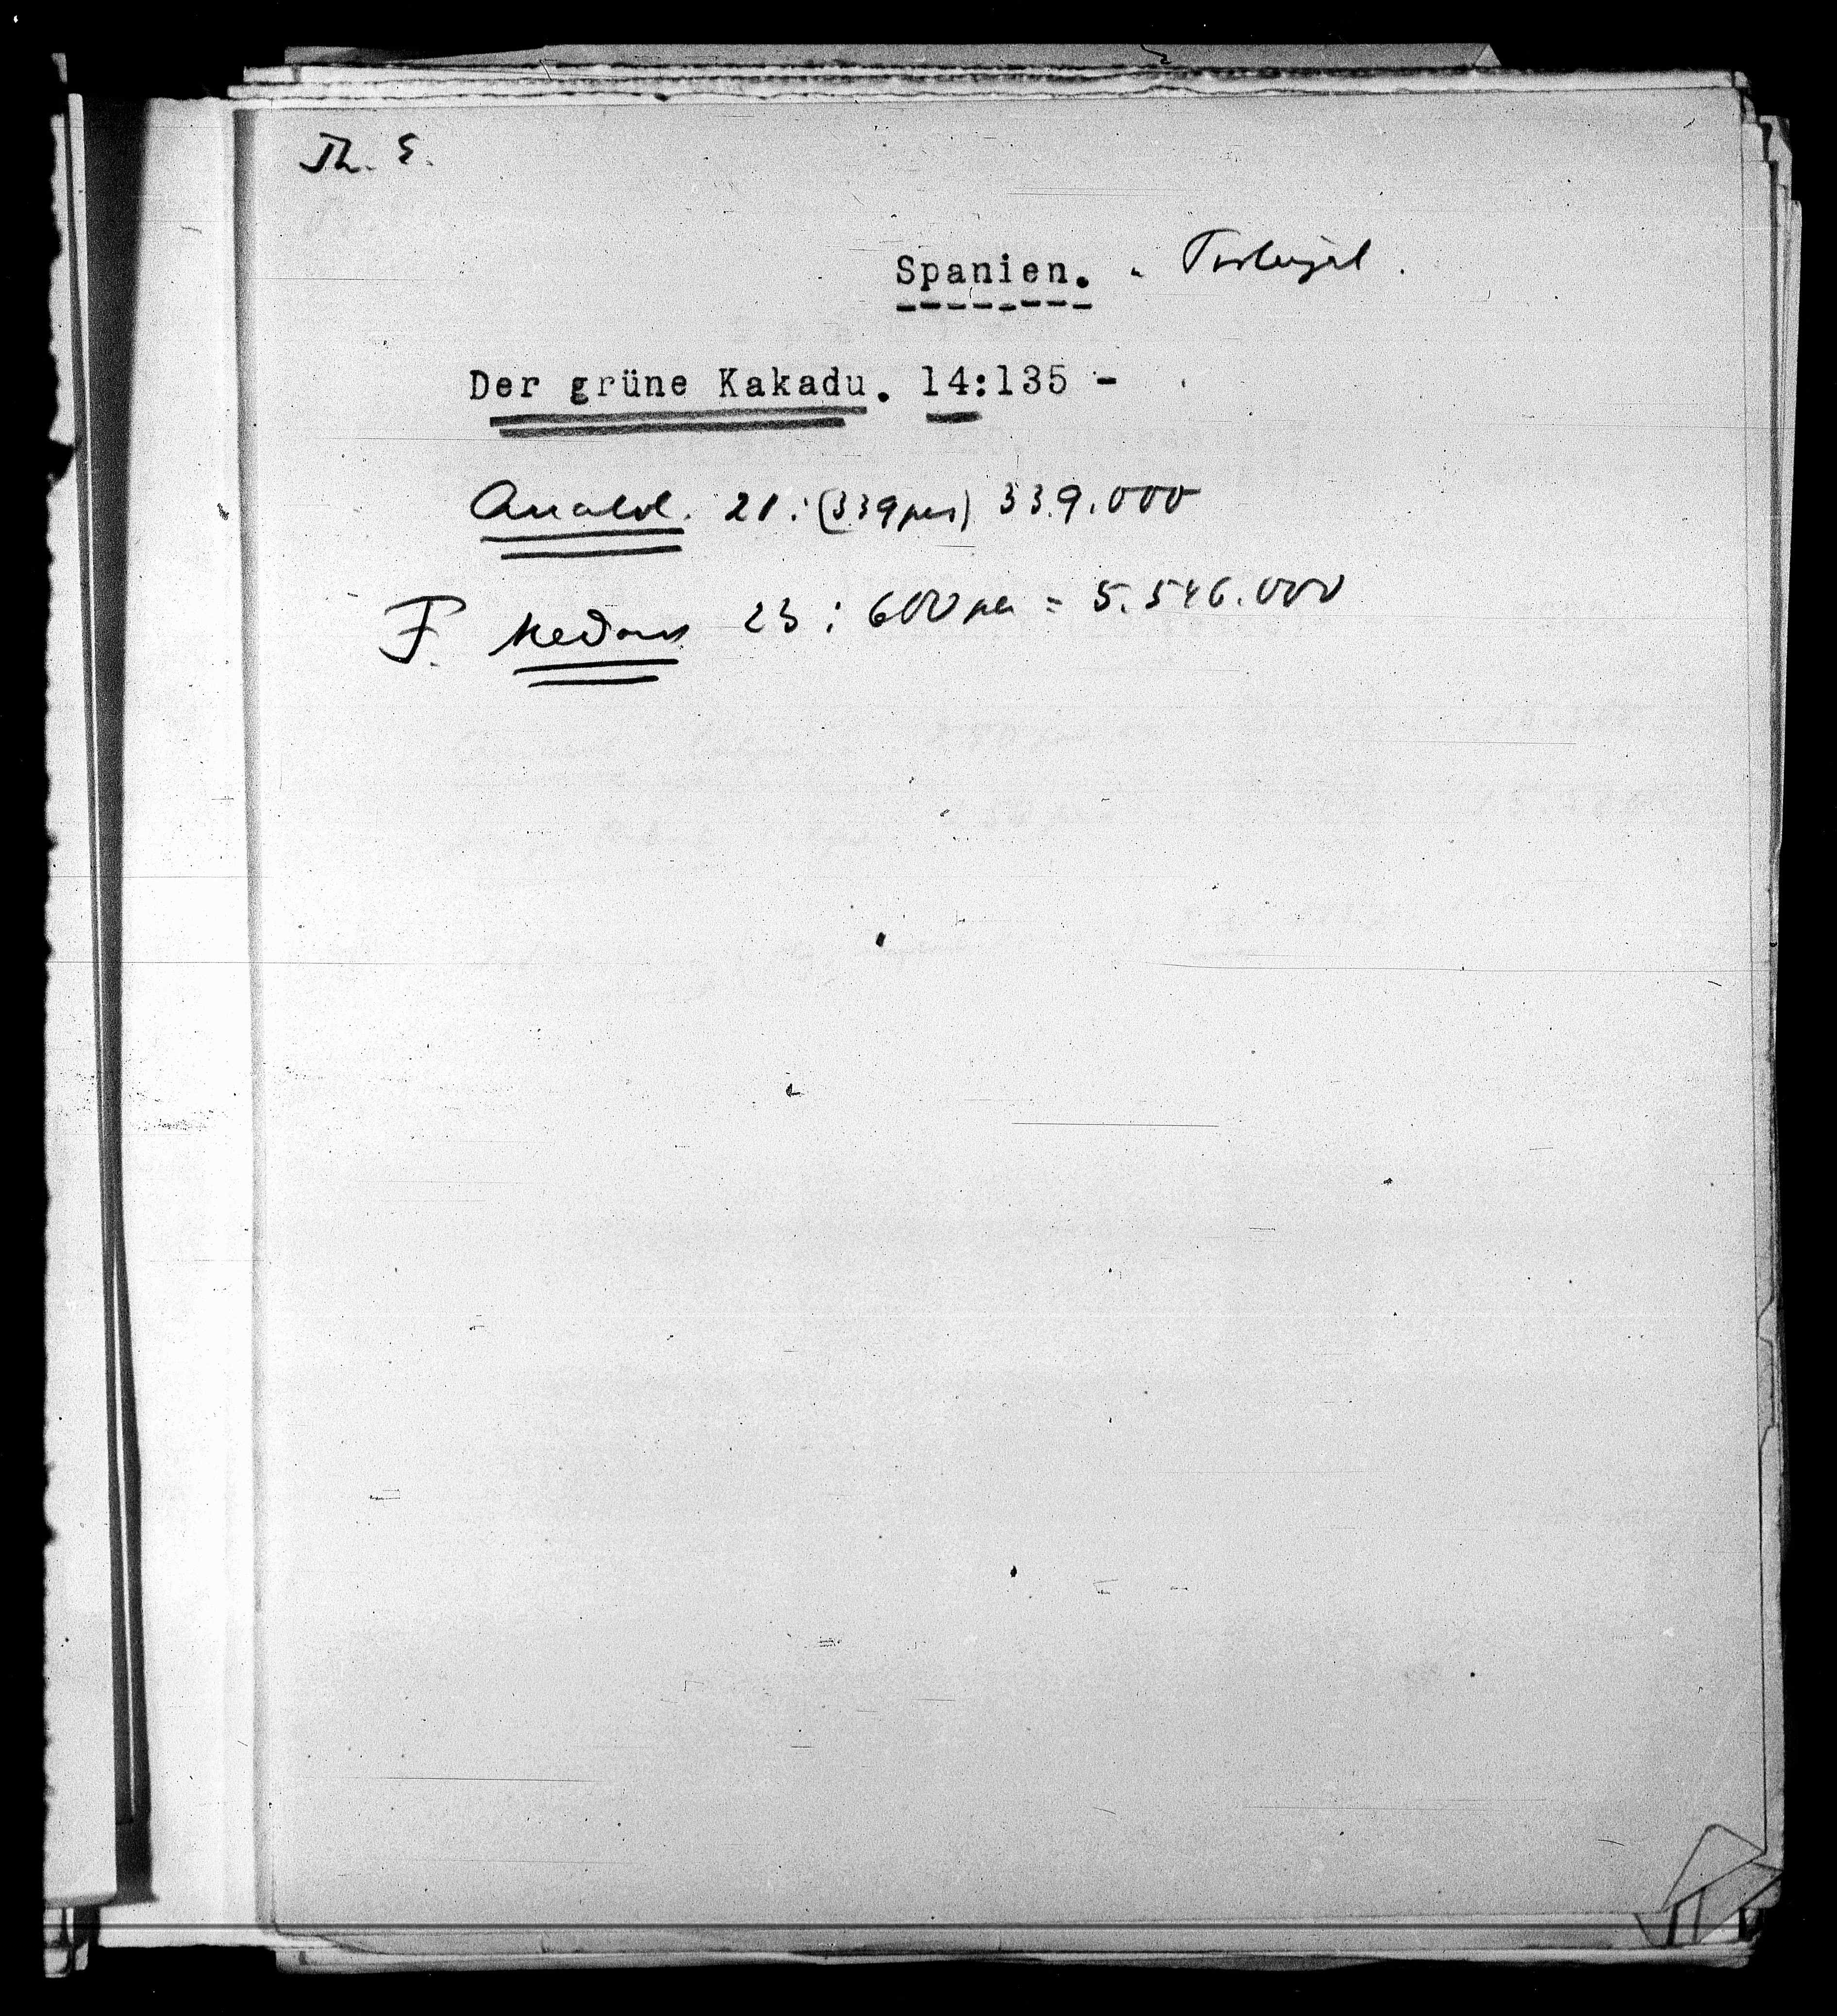 Th. E.
Spanien. - Portugal.
Der grüne Kakadu. 14:135 -
Anatol. 21: (339 pes) 339.000
F. Medard 23: 600 pes = 5.546.000